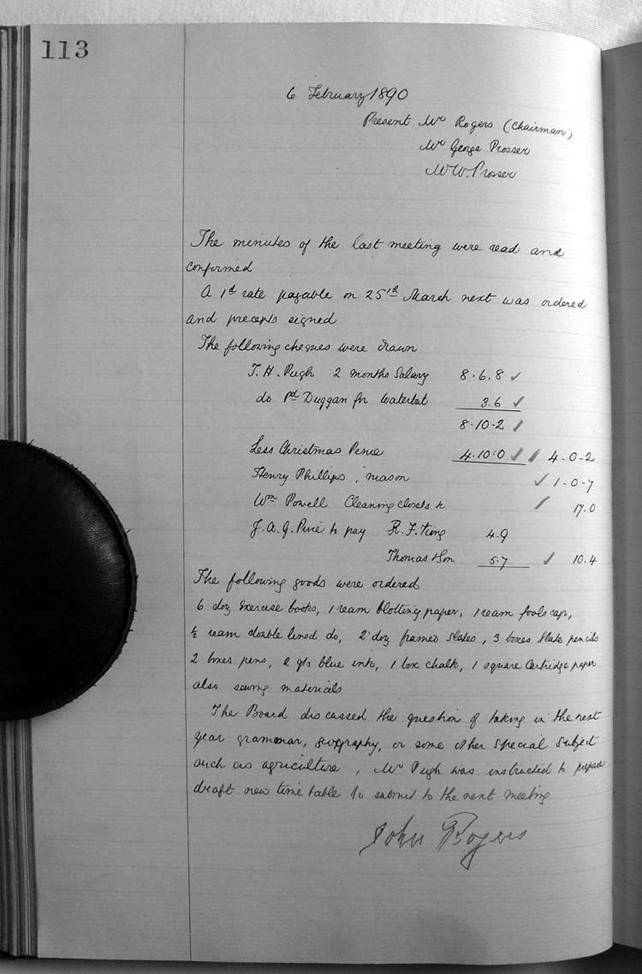 113
6 February 1890
Present Mr Rogers (Chairman)
Mr George Prosser
Mr W. Prosser
The minutes of the last meeting were read and
confirmed
A 1d rate payable on 25th March next was ordered
and precepts signed
The following cheques were drawn
T. H. Pugh 2 months Salary 8.6.8 ✓
do Pd Duggan for 3.6 ✓
8.10.2 ✓
Less Christmas Pence 4.10.0 ✓ ✓ 4-0-2
Henry Phillips, mason ✓ 1-0-7
Wm Powell Cleaning closets &c ✓ 17.0
J. A. G. to pay R. F. King 4.9
Thomas & Son 5.7 ✓ 10.4
The following goods were ordered
6 doz Exercise books, 1 ream blotting paper, 1 ream foolscap,
½ ream double lined do, 2 doz framed slates, 3 boxes slate pencils
2 boxes pens, 2 qts blue ink, 1 box chalk, 1 square Cartridge paper
also sewing materials
The Board discussed the question of taking in the next
year grammar, geography, or some other Special Subject
such as agriculture, Mr Pugh was instructed to prepare
draft new time table to submit to the next meeting
John Rogers